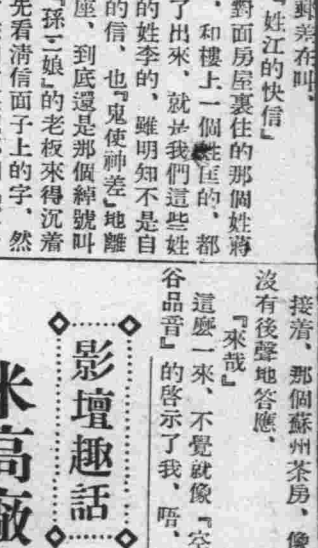 郵差在叫、
『姓江的快信』
對面房屋裏住的那個姓蔣
、和樓上一個姓匡的、都
了出來、就是我們這些姓
的姓李的、雖明知不是自
的信、也『鬼使神差』地離
座、到底還是那個綽號叫
『孫二娘』的老板來得沉着
先看清信面子上的字、然
接着、那個蘇州茶房、像
沒有後聲地答應、
『來哉』
這麼一來、不覺就像『空
谷品音』的啓示了我、唔、
影壇趣話
米高廠